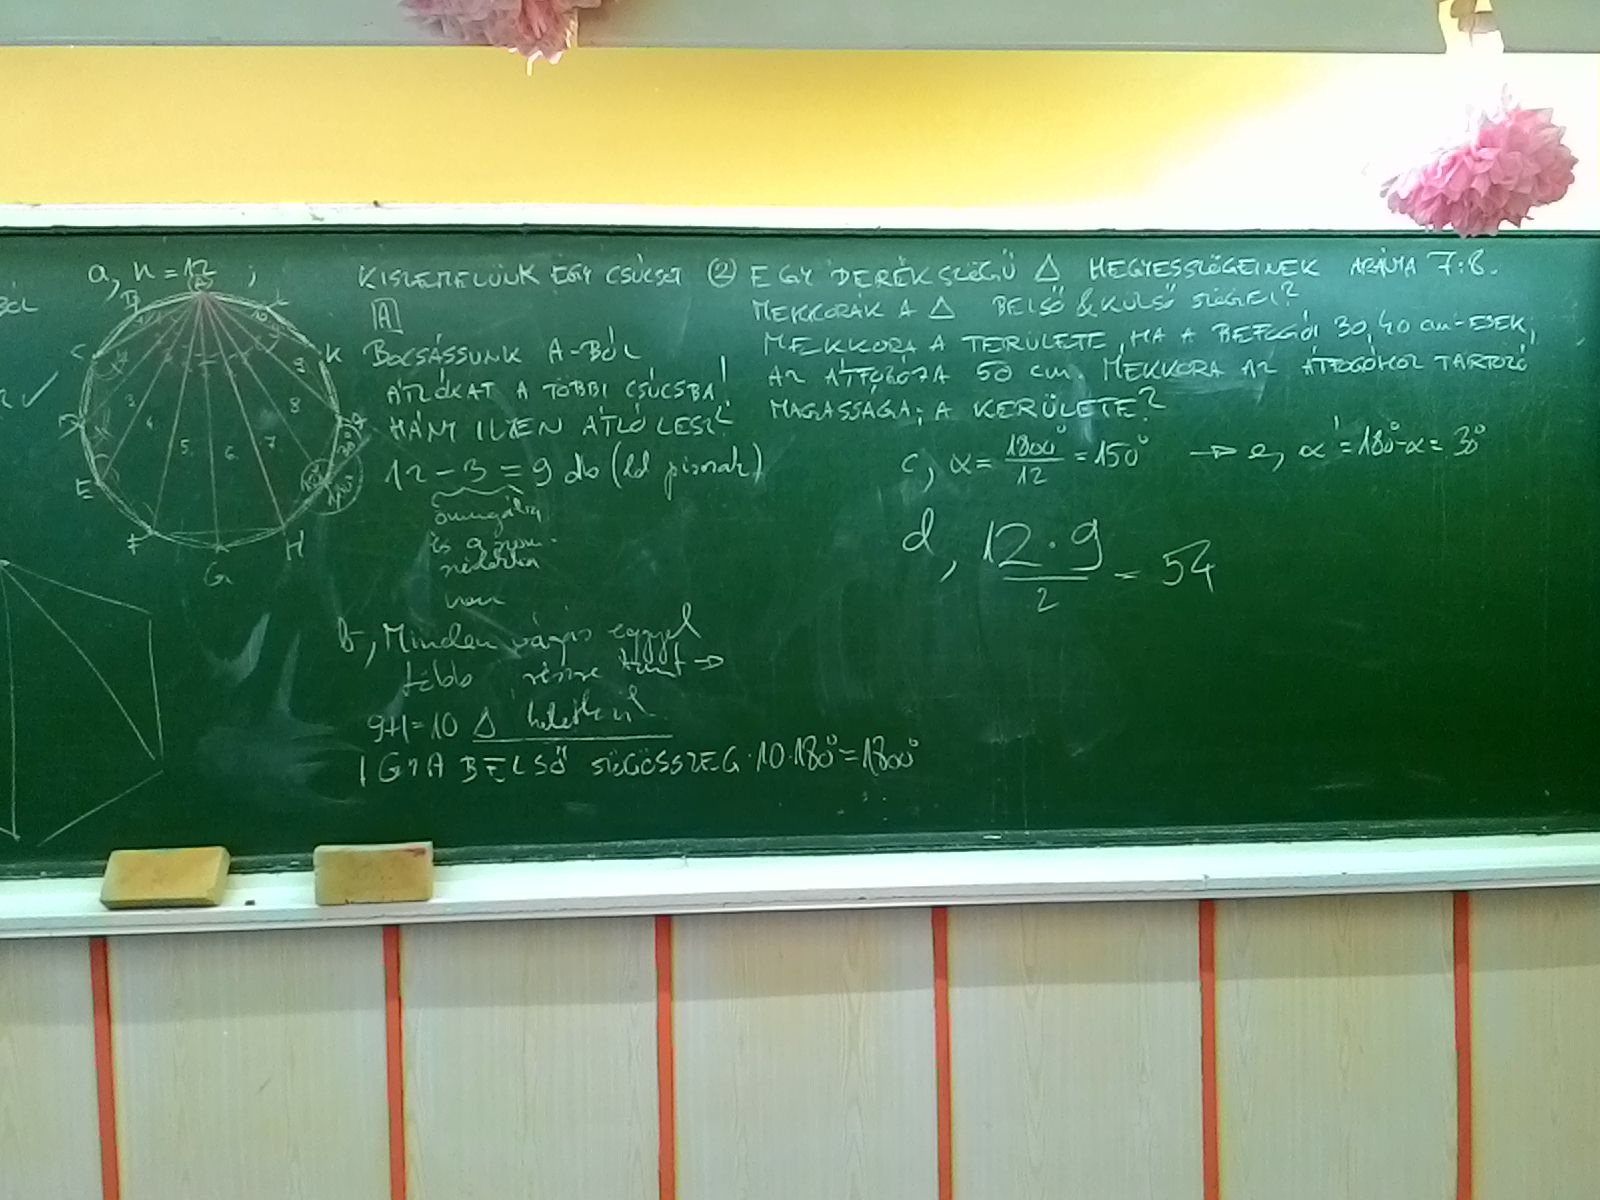 BÓL
a, n = 12 ;
A
B
L
C
K
D
E
F
G
H
3
4
5
6
7
8
9
30°
KISZEMELÜNK EGY CSÚCST
A
BOCSÁSSUNK A-BÓL
ÁTLÓKAT A TÖBBI CSÚCSBA!
HÁNY ILYEN ÁTLÓ LESZ?
12 - 3 = 9 db (ld piros)
önmagába
és a szom-
szédokba
nem
b, Minden vágás eggyel
több részre
9+1=10 △ keletkezik
ÍGY A BELSŐ SZÖGÖSSZEG 10·180°=1800°
② EGY DERÉKSZÖGŰ △ HEGYESSZÖGEINEK ARÁNYA 7:8.
MEKKORÁK A △ BELSŐ & KÜLSŐ SZÖGEI?
MEKKORA A TERÜLETE, HA A BEFOGÓI 30,40 cm-ESEK,
AZ ÁTFOGÓJA 50 cm. MEKKORA AZ ÁTFOGÓHOZ TARTOZÓ
MAGASSÁGA; A KERÜLETE?
c, α = 1800°/12 = 150° → e, α' = 180°-α = 30°
d, 12·9/2 = 54